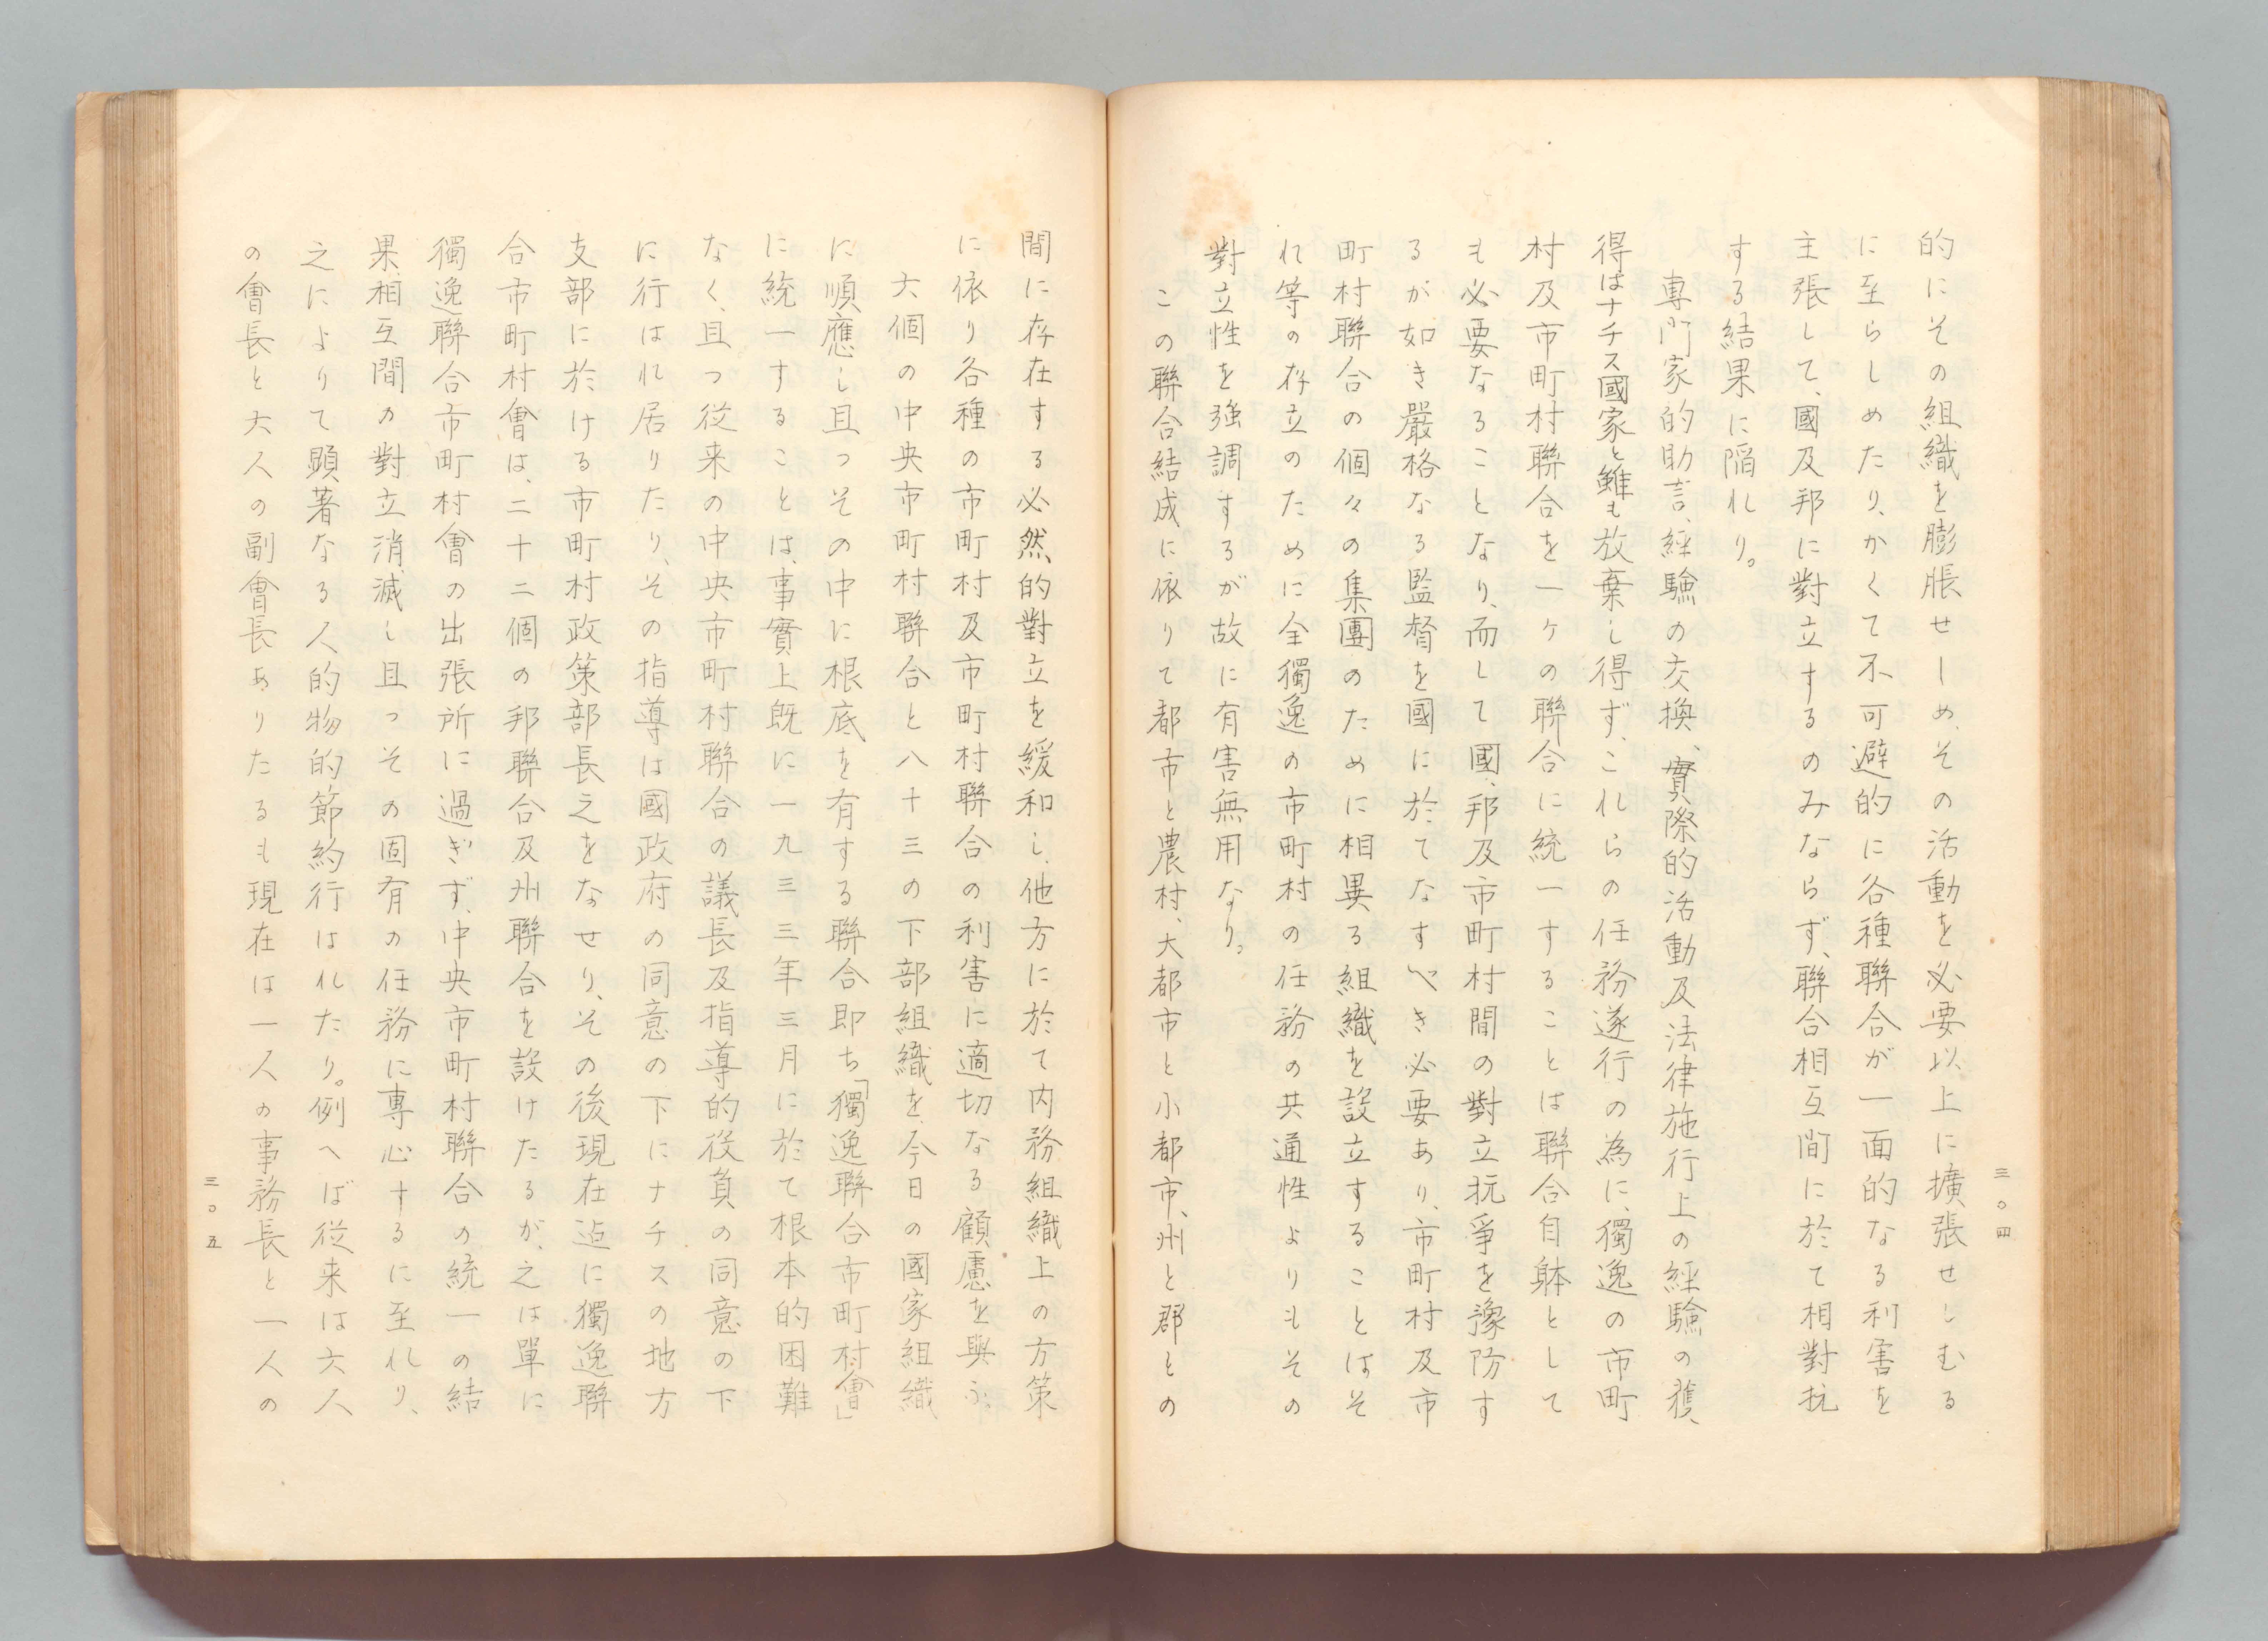 三〇四
的にその組織を膨脹せしめ、その活動を必要以上に擴張せしむる
に至らしめたり、かくて不可避的に各種聯合が一面的なる利害を
主張して、國及邦に對立するのみならず、聯合相互間に於て相對抗
する結果に陥れり。
専門家的助言、経驗の交換、實際的活動及法律施行上の経驗の獲
得はナチス國家と雖も放棄し得ず、これらの任務遂行の為に、獨逸の市町
村及市町村聯合を一ヶの聯合に統一することは聯合自躰として
も必要なることなり、而して國、邦及市町村間の對立抗爭を豫防す
るが如き嚴格なる監督を國に於てなすべき必要あり、市町村及市
町村聯合の個々の集團のために相異る組織を設立することはそ
れ等の存立のために全獨逸の市町村の任務の共通性よりもその
對立性を強調するが故に有害無用なり。
この聯合結成に依りて都市と農村、大都市と小都市、州と郡との
間に存在する必然的對立を緩和し、他方に於て内務組織上の方策
に依り各種の市町村及市町村聯合の利害に適切なる顧慮を與ふ、
六個の中央市町村聯合と八十三の下部組織を、今日の國家組織
に順應し且つその中に根底を有する聯合即ち「獨逸聯合市町村會」
に統一することは、事實上既に一九三三年三月に於て根本的困難
なく、且つ従来の中央市町村聯合の議長及指導的役員の同意の下
に行はれ居りたり、その指導は國政府の同意の下にナチスの地方
支部に於ける市町村政策部長之をなせり、その後現在迄に獨逸聯
合市町村會は、二十二個の邦聯合及州聯合を設けたるが、之は單に
獨逸聯合市町村會の出張所に過ぎず、中央市町村聯合の統一の結
果、相互間の對立消滅し且つその固有の任務に専心するに至れり、
之によりて顕著なる人的物的節約行はれたり。例へば従来は六人
の會長と六人の副會長ありたるも現在は一人の事務長と一人の
三〇五